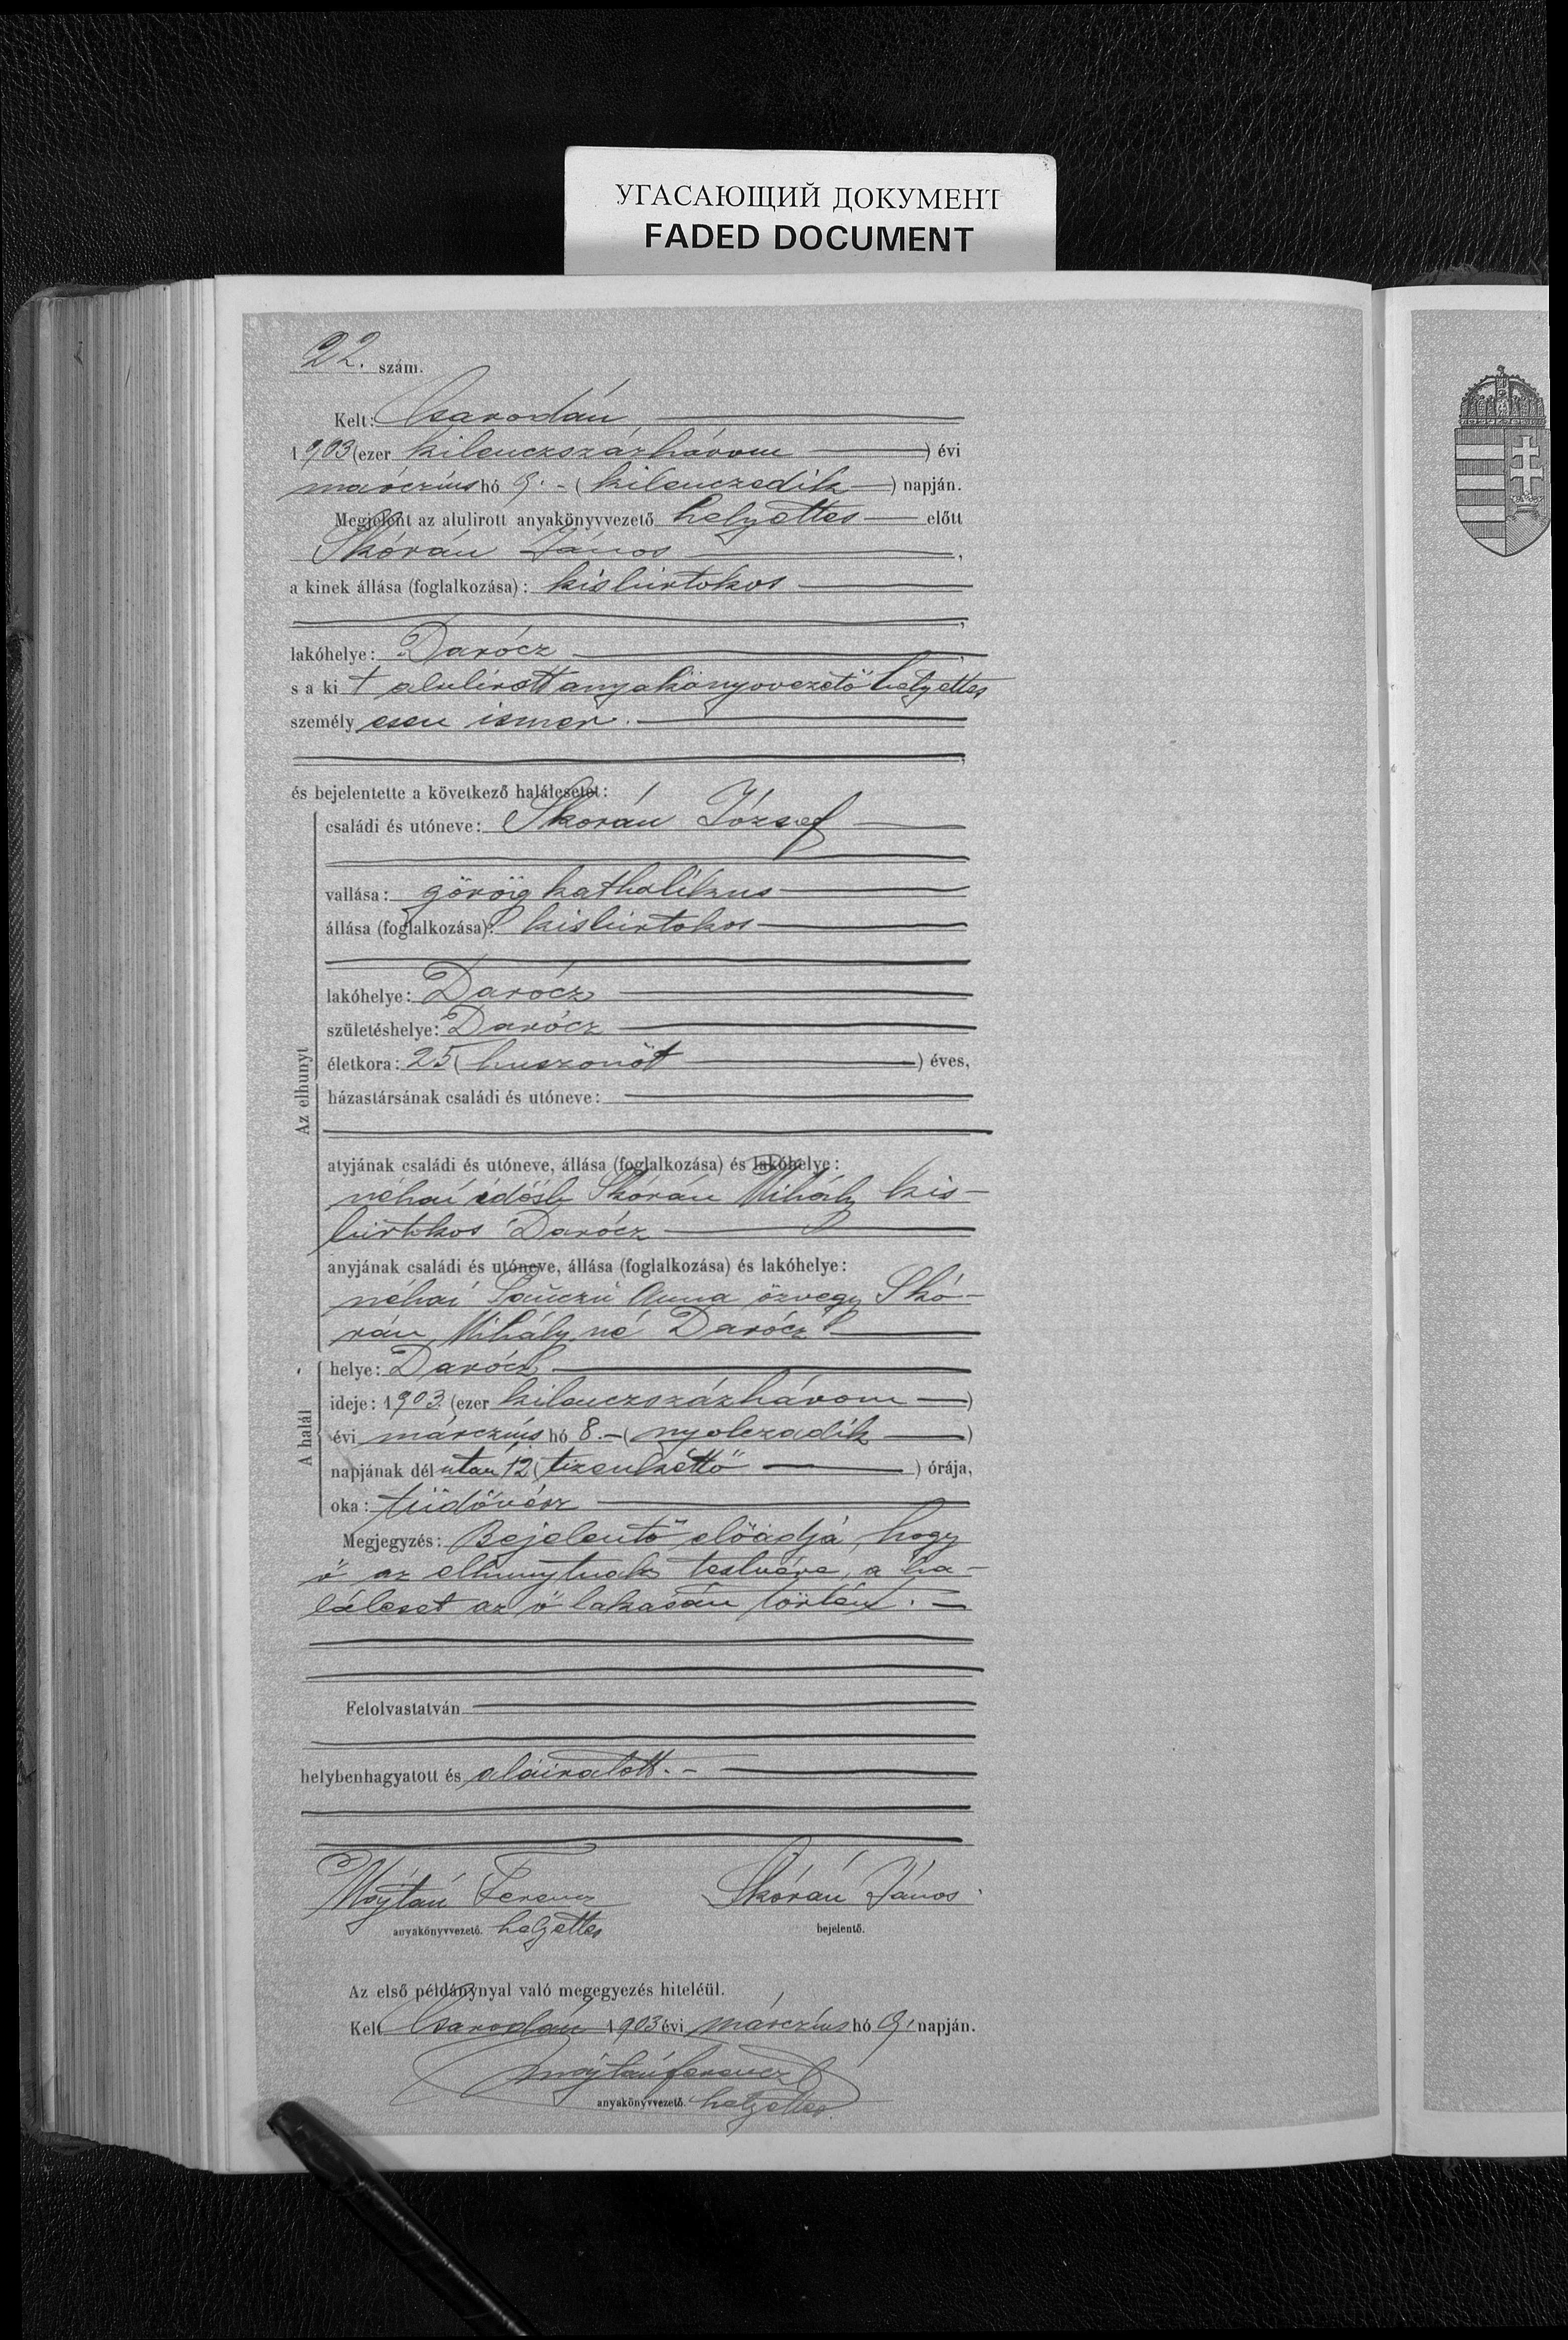 УГАСАЮЩИЙ ДОКУМЕНТ
FADED DOCUMENT
22. szám.
Kelt: Csarodán
1903 (ezer kilenczszázhárom) évi
márczius hó 9.- (kilenczedik) napján.
Megjelent az alulirott anyakönyvvezető helyettes előtt
Skórán János,
a kinek állása (foglalkozása): kisbirtokos
lakóhelye: Darócz
s a ki t alulirott anyakönyvvezető helyettes
személyesen ismer.
és bejelentette a következő halálesetet:
Az elhunyt
családi és utóneve: Skorán József
vallása: görög katholikus
állása (foglalkozása): kisbirtokos
lakóhelye: Darócz
születéshelye: Darócz
életkora: 25 (huszonöt) éves,
házastársának családi és utóneve:
atyjának családi és utóneve, állása (foglalkozása) és lakóhelye:
néhai idősb Skórán Mihály kis-
birtokos Darócz
anyjának családi és utóneve, állása (foglalkozása) és lakóhelye:
néhai Anna özvegy Skó-
rán Mihályné Darócz
A halál
helye: Darócz
ideje: 1903. (ezer kilenczszázhárom)
évi márczius hó 8.- (nyolczadik)
napjának délután 12 (tizenkettő) órája,
oka: tüdővész
Megjegyzés: Bejelentő előadja, hogy
ő az elhunytnak testvére, a ha-
láleset az ő lakásán történt.
Felolvastatván
helybenhagyatott és aláiratott.-
Majtán Ferencz Skórán János
anyakönyvvezető. helyettes bejelentő.
Az első példánynyal való megegyezés hiteléül.
Kelt Csarodán 1903 évi márczius hó 9. napján.
Majtán Ferencz
anyakönyvvezető. helyettes.